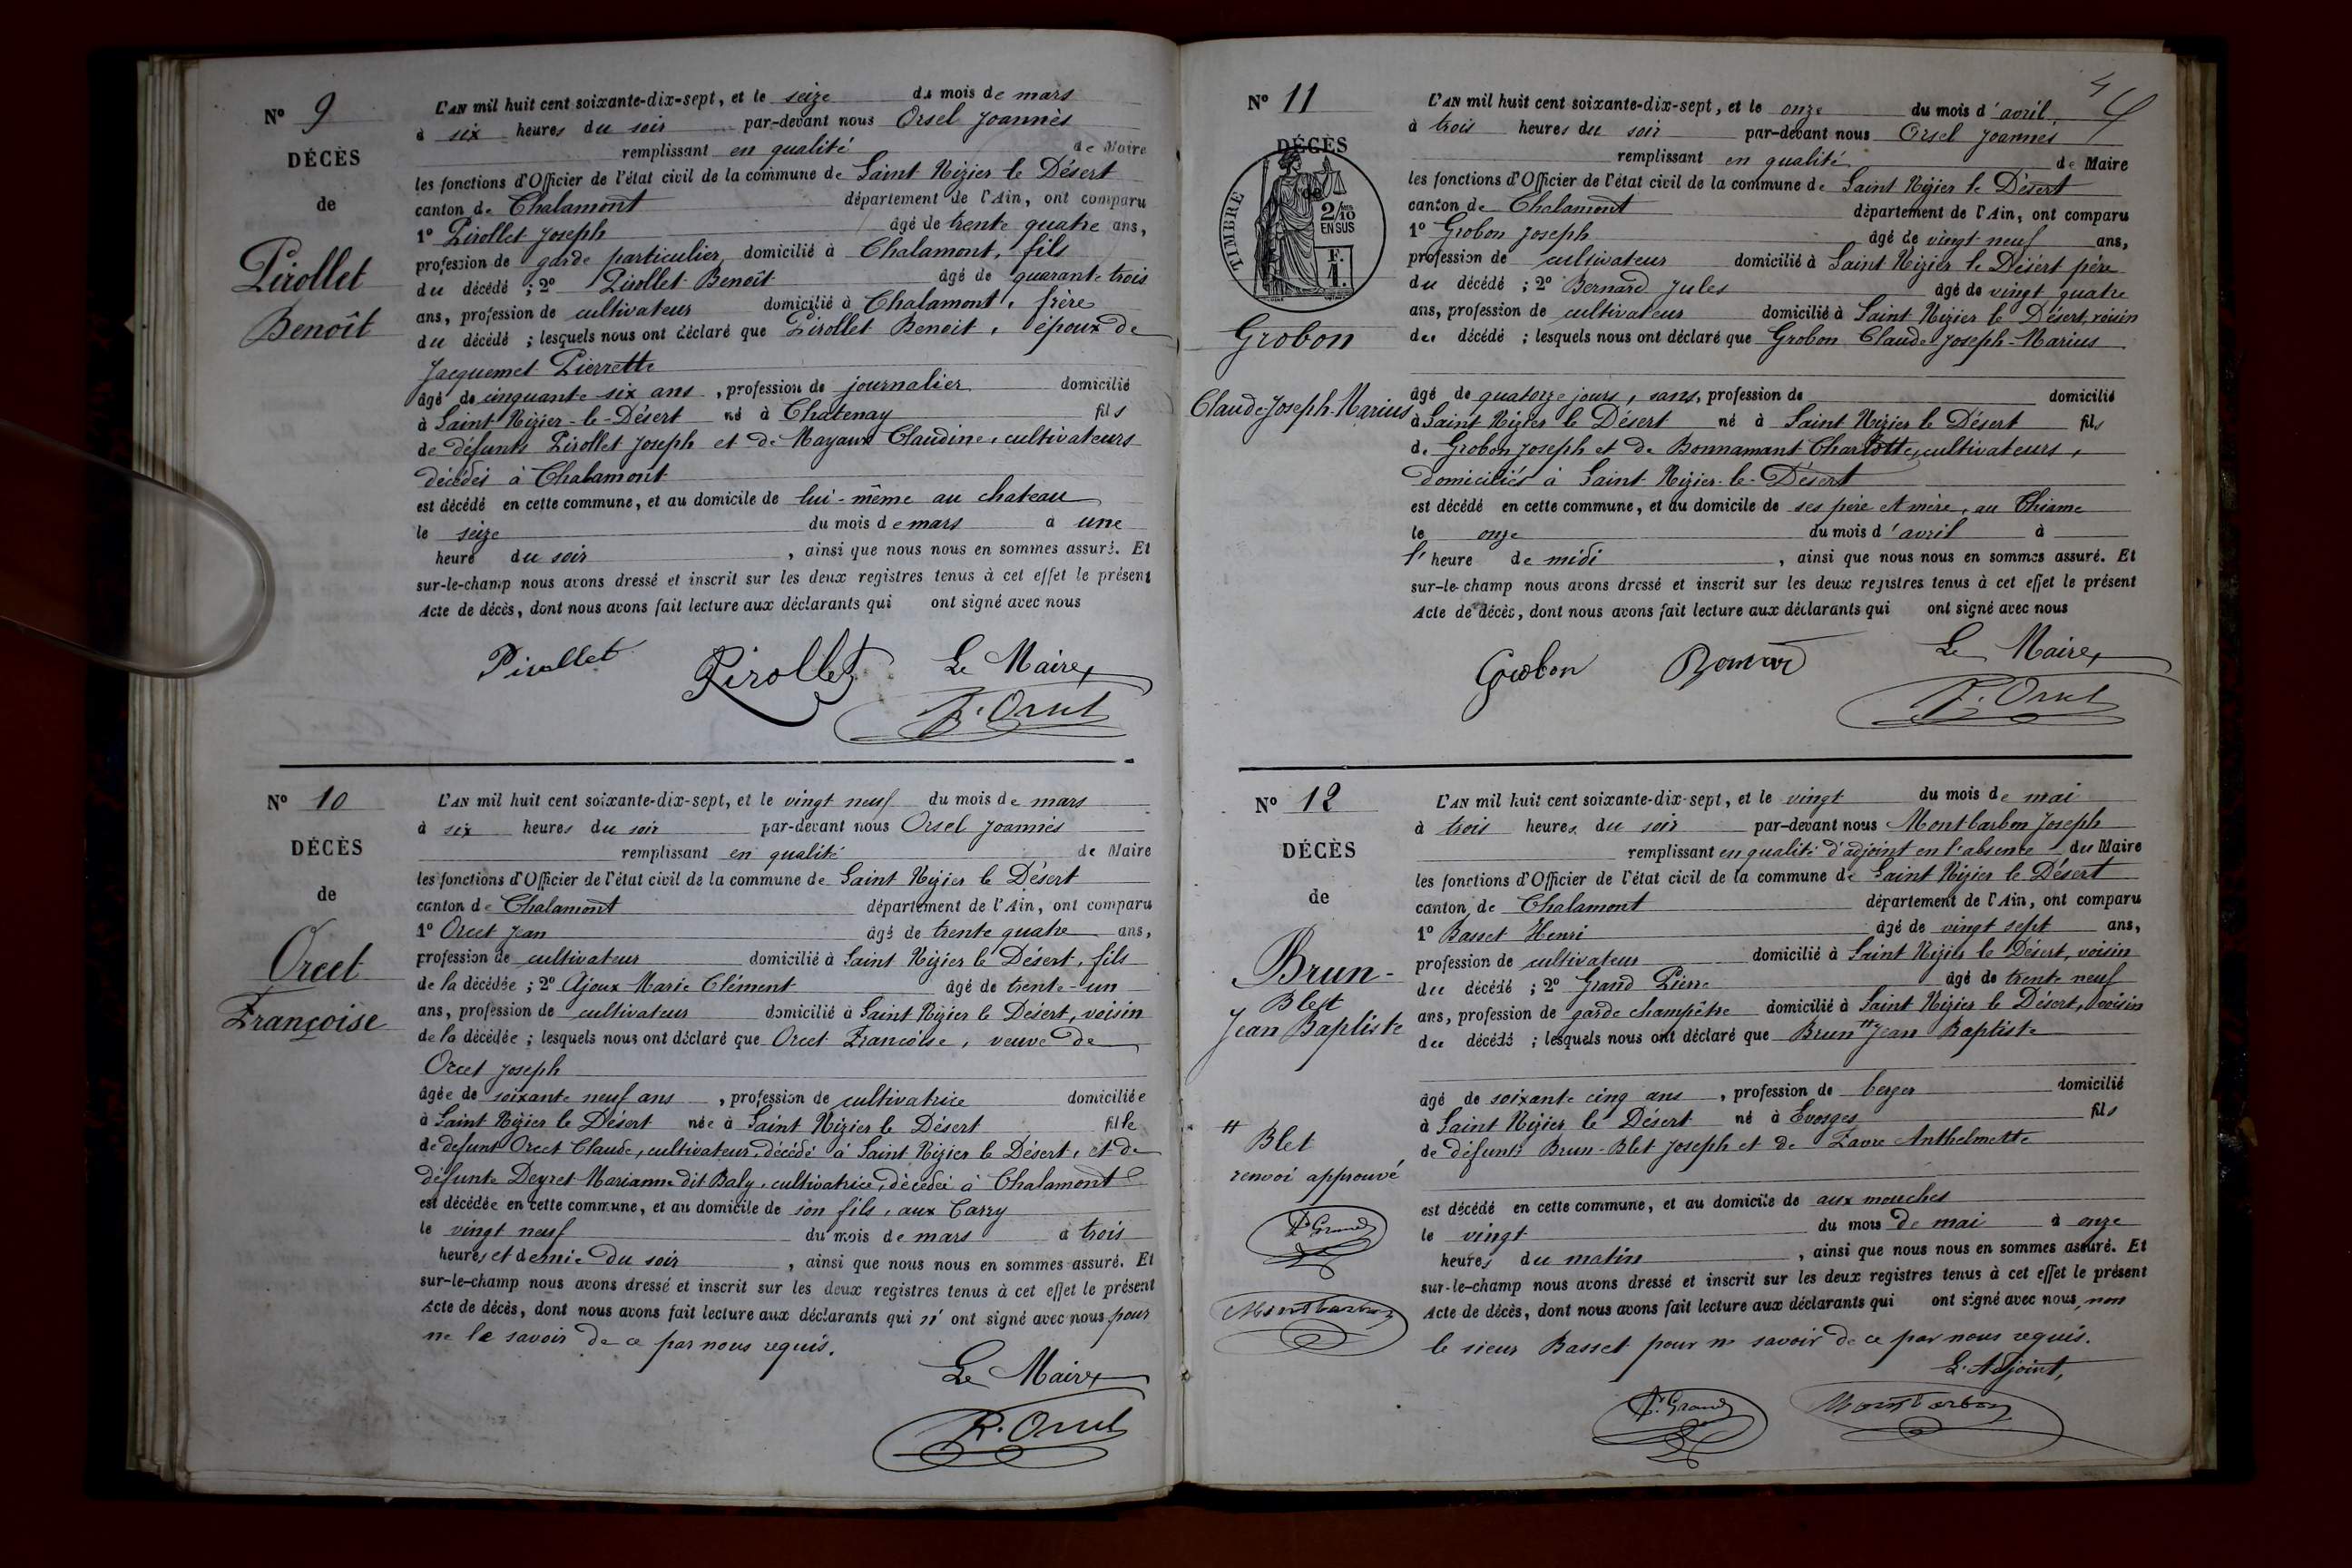 N° 9
DÉCÈS
de
Pirollet
Benoît
L'AN mil huit cent soixante-dix-sept, et le seize du mois de mars
à six heures du soir par-devant nous Orsel Joannès
remplissant en qualité de Maire
les fonctions d'Officier de l'état civil de la commune de Saint Nizier le Désert
canton de Chalamont département de l'Ain, ont comparu
1° Pirollet Joseph âgé de trente quatre ans,
profession de garde particulier domicilié à Chalamont, fils
du décédé ; 2° Pirollet Benoît âgé de quarante trois
ans, profession de cultivateur domicilié à Chalamont, frère
du décédé ; lesquels nous ont déclaré que Pirollet Benoit, époux de
Jacquemet Pierrette
âgé de cinquante six ans, profession de journalier domicilié
à Saint Nizier-le-Désert né à Chatenay fils
de défunts Pirollet Joseph et de Mayaux Claudine, cultivateurs
décédés à Chalamont
est décédé en cette commune, et au domicile de lui-même au chateau
le seize du mois de mars à une
heure du soir, ainsi que nous nous en sommes assuré. Et
sur-le-champ nous avons dressé et inscrit sur les deux registres tenus à cet effet le présent
Acte de décès, dont nous avons fait lecture aux déclarants qui ont signé avec nous
Pirollet Pirollet Le Maire,
Orsel
N° 10
DÉCÈS
de
Orcet
Françoise
L'AN mil huit cent soixante-dix-sept, et le vingt neuf du mois de mars
à six heures du soir par-devant nous Orsel Joannès
remplissant en qualité de Maire
les fonctions d'Officier de l'état civil de la commune de Saint Nizier le Désert
canton de Chalamont département de l'Ain, ont comparu
1° Orcet Jean âgé de trente quatre ans,
profession de cultivateur domicilié à Saint Nizier le Désert, fils
de la décédée ; 2° Ajoux Marie Clément âgé de trente-un
ans, profession de cultivateur domicilié à Saint Nizier le Désert, voisin
de la décédée ; lesquels nous ont déclaré que Orcet Françoise, veuve de
Orcet Joseph
âgée de soixante neuf ans, profession de cultivatrice domiciliée
à Saint Nizier le Désert née à Saint Nizier le Désert fille
de defunt Orcet Claude, cultivateur, décédé à Saint Nizier le Désert, et de
défunte Deyret Marianne dit Baly, cultivatrice, décédée à Chalamont
est décédée en cette commune, et au domicile de son fils, aux Carry
le vingt neuf du mois de mars à trois
heures et demie du soir, ainsi que nous nous en sommes assuré. Et
sur-le-champ nous avons dressé et inscrit sur les deux registres tenus à cet effet le présent
Acte de décès, dont nous avons fait lecture aux déclarants qui n'ont signé avec nous pour
ne le savoir de ce par nous requis.
Le Maire,
Orsel
4
N° 11
DÉCÈS
de
TIMBRE
2/10
EN SUS
F.
1.
Grobon
Claude Joseph-Marius
L'AN mil huit cent soixante-dix-sept, et le onze du mois d'avril
à trois heures du soir par-devant nous Orsel Joannès
remplissant en qualité de Maire
les fonctions d'Officier de l'état civil de la commune de Saint Nizier le Désert
canton de Chalamont département de l'Ain, ont comparu
1° Grobon Joseph âgé de vingt neuf ans,
profession de cultivateur domicilié à Saint Nizier le Désert père
du décédé ; 2° Bernard Jules âgé de vingt quatre
ans, profession de cultivateur domicilié à Saint Nizier le Désert, voisin
du décédé ; lesquels nous ont déclaré que Grobon Claude Joseph-Marius
âgé de quatorze jours, sans, profession de domicilié
à Saint Nizier le Désert né à Saint Nizier le Désert fils
de Grobon Joseph et de Bonnamant Charlotte, cultivateurs,
domiciliés à Saint-Nizier-le-Désert
est décédé en cette commune, et au domicile de ses père et mère, au Thiame
le onze du mois d'avril à
l'heure de midi, ainsi que nous nous en sommes assuré. Et
sur-le-champ nous avons dressé et inscrit sur les deux registres tenus à cet effet le présent
Acte de décès, dont nous avons fait lecture aux déclarants qui ont signé avec nous
Grobon Bernard Le Maire,
Orsel
N° 12
DÉCÈS
de
Brun-
Blet
Jean Baptiste
# Blet
renvoi approuvé
Grand
Montbarbon
L'AN mil huit cent soixante-dix-sept, et le vingt du mois de mai
à trois heures du soir par-devant nous Montbarbon Joseph
remplissant en qualité d'adjoint en l'absence du Maire
les fonctions d'Officier de l'état civil de la commune de Saint Nizier le Désert
canton de Chalamont département de l'Ain, ont comparu
1° Basset Henri âgé de vingt sept ans,
profession de cultivateur domicilié à Saint Nizier le Désert, voisin
du décédé ; 2° Grand Pierre âgé de trente neuf
ans, profession de garde champêtre domicilié à Saint Nizier le Désert, voisin
du décédé ; lesquels nous ont déclaré que Brun # Jean Baptiste
âgé de soixante cinq ans, profession de berger domicilié
à Saint Nizier le Désert né à Evosges fils
de défunts Brun-Blet Joseph et de Favre Anthelmette
est décédé en cette commune, et au domicile de aux mouches
le vingt du mois de mai à onze
heures du matin, ainsi que nous nous en sommes assuré. Et
sur-le-champ nous avons dressé et inscrit sur les deux registres tenus à cet effet le présent
Acte de décès, dont nous avons fait lecture aux déclarants qui ont signé avec nous, non
le sieur Basset pour ne savoir de ce par nous requis.
L'Adjoint,
Grand Montbarbon